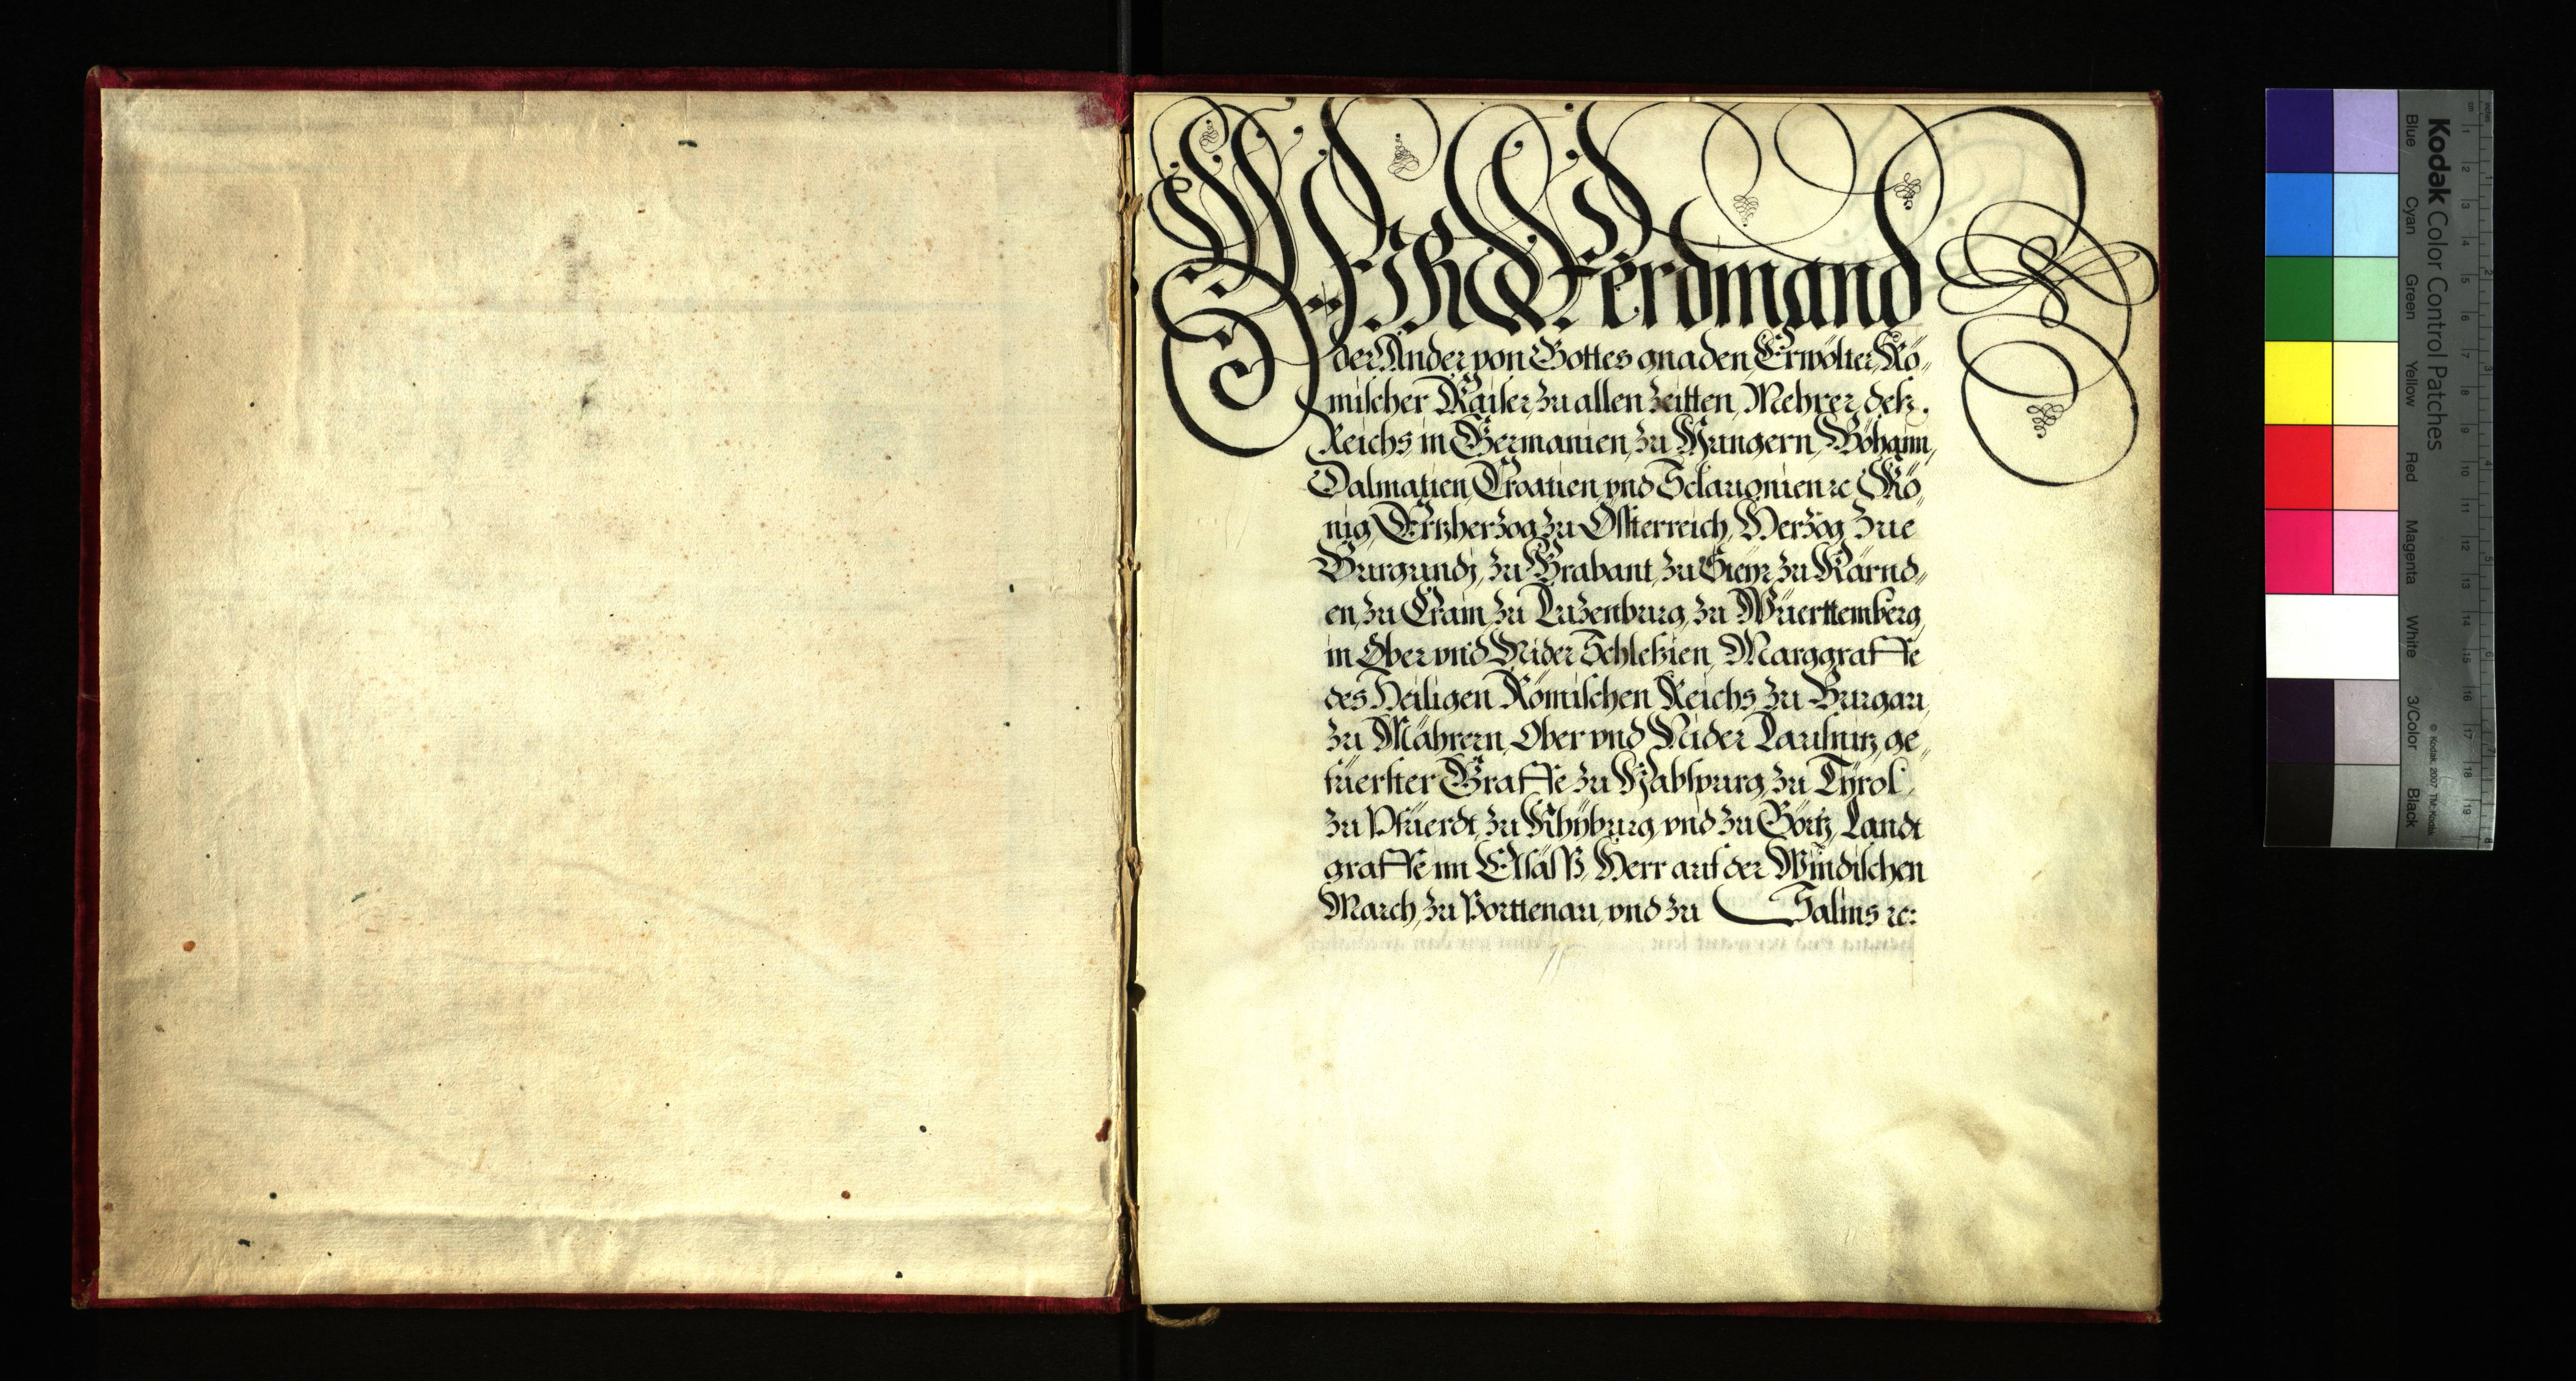 WIR Ferdinand
der Ander von Gottes gnaden, Erwölter Rö„
mischer Kaiser, zu allen Zeitten, Mehrer deß.
Reichs, in Germanien, zu Hungern, Böhaim,
Dalmatien, Croatien, vnd Sclauonien ꝛc Kö„
nig, Ertzherzog zu Össterreich, Herzog zue
Burgundj, zu Brabant, zu Steyr, zu Kärnd„
en, zu Crain, zu Luzenburg, zu Wüerttemberg,
in Ober vnd Nider Schleßien, Marggraffe
des Heiligen Römischen Reichs, zu Burgau,
zu Mährern, Ober vnd Nider Laußnitz, ge„
füerster Graffe zu Habspurg, zu Tyrol,
zu Pfüerdt, zu Khyburg, vnd zu Görtz, Landt
graffe im Elsäsß, Herr auf der Windischen
March, zu Porttenau, vnd zu Salins ꝛc:
Kodak Color Control Patches
Blue Cyan Green Yellow Red Magenta White 3/Color Black
© Kodak, 2007 TM: Kodak
inches
cm 1 2 3 4 5 6 7 8 9 10 11 12 13 14 15 16 17 18 19